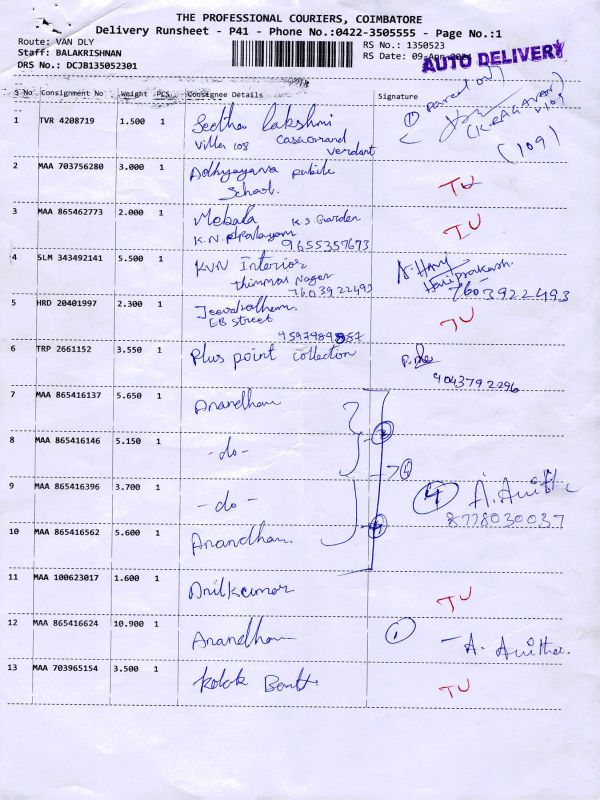 THE PROFESSIONAL COURIERS, COIMBATORE
Delivery Runsheet - P41 - Phone No.:0422-3505555 - Page No.:1
Route: VAN DLY
Staff: BALAKRISHNAN
DRS No.: DCJB135052301
RS No.: 1350523
RS Date: 09-Apr
AUTO DELIVERY
S No Consignment No Weight PCS Consignee Details Signature
1 TVR 4208719 1.500 1 Seetha Lakshmi
Villa 108 Casagrand
verdant
① Parcel
(K.RAGAVAN)
(109)
2 MAA 703756280 3.000 1 Adhyayana public
School.
TU
3 MAA 865462773 2.000 1 Mebala K.S Garden
K.N.
9655357673
TU
4 SLM 343492141 5.500 1 KVN Interior
Thimmai Nagar
7603922493
A. Hari
Hariprakash.
7603922493
5 HRD 20401997 2.300 1
EB street
TU
6 TRP 2661152 3.550 1 Plus point collection
9043792296
7 MAA 865416137 5.650 1 Anandham
8 MAA 865416146 5.150 1 -do-
9 MAA 865416396 3.700 1 -do-
④ A. Anitha
8778030037
10 MAA 865416562 5.600 1 Anandham.
11 MAA 100623017 1.600 1 Anilkumar
TU
12 MAA 865416624 10.900 1 Anandham
① - A. Anitha.
13 MAA 703965154 3.500 1
TU